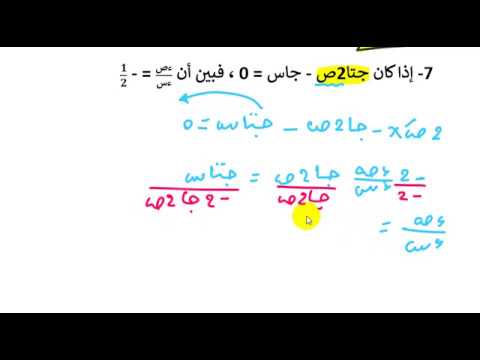 7- إذا كان جتا2ص - جاس = 0 ، فبين أن ءص/ءس = - 1/2
2صَ x - جا2ص - جتاس = 0
-2/-2 ءص/ءس جا2ص/جا2ص = جتاس/-2جا2ص
ءص/ءس =